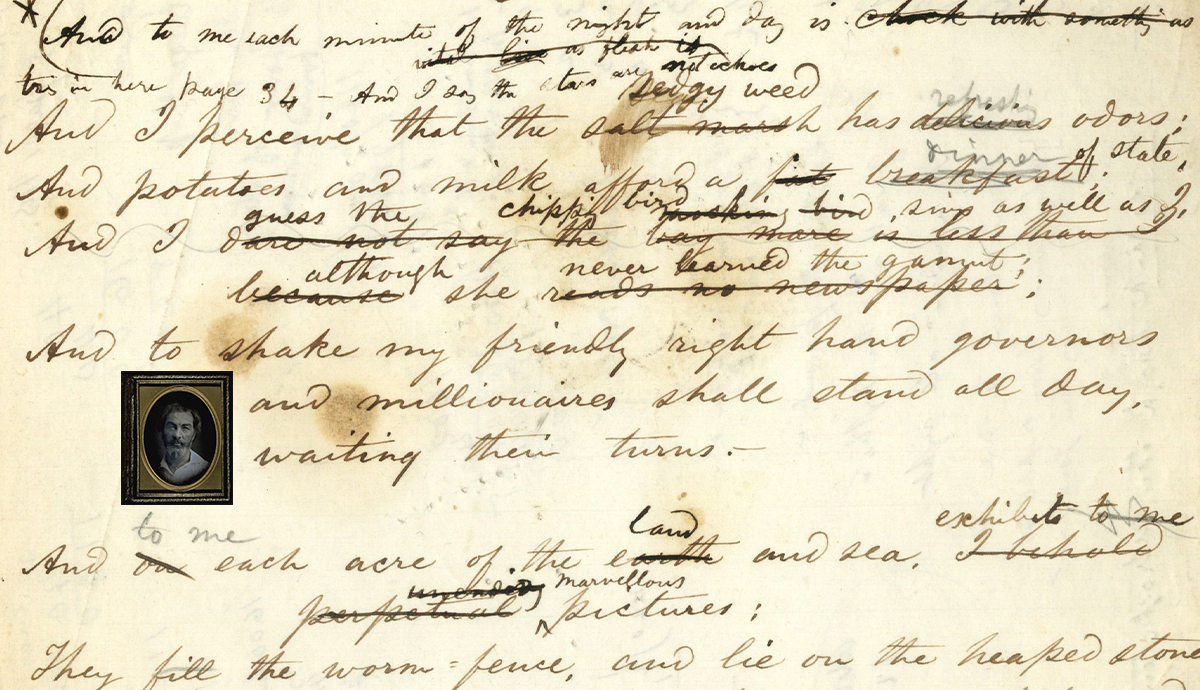 And to me each minute of the night and day is chock with something as
vital live as flesh is
tres in here page 34 – And I say the stars are not echoes
sedgy weed
refreshing
And I perceive that the salt marsh has delicious odors;
dinner of state,
And potatoes and milk afford a fit breakfast
guess the chippy bird mocking bird sings as well as I,
And I dare not say the bay mare is less than I
although never learned the gamut;
because she reads no newspaper;
And to shake my friendly right hand governors
and millionaires shall stand all day,
waiting their turns.–
to me land exhibits to me
And on each acre of the earth and sea, I behold
unending marvellous
perpetual pictures;
They fill the worm-fence, and lie on the heaped stone